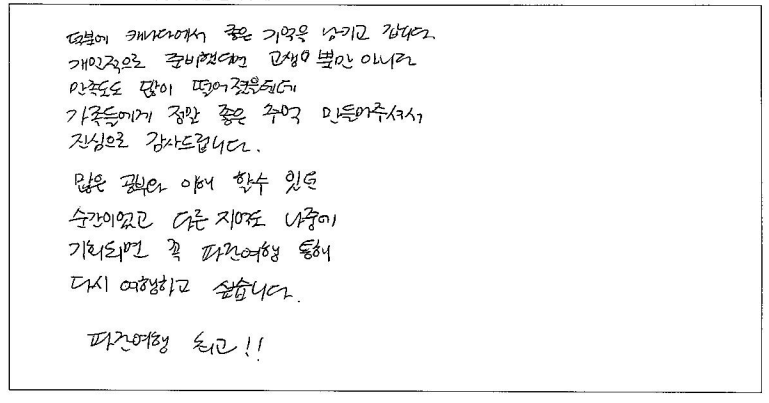 덕분에 캐나다에서 좋은 기억을 남기고 갑니다.
개인적으로 준비했다면 고생뿐만 아니라
만족도도 많이 떨어졌을텐데
가족들에게 정말 좋은 추억 만들어주셔서
진심으로 감사드립니다.
많은 공부와 이해 할수 있던
순간이었고 다른 지역도 나중에
기회되면 꼭 파란여행 통해
다시 여행하고 싶습니다.
파란여행 최고!!